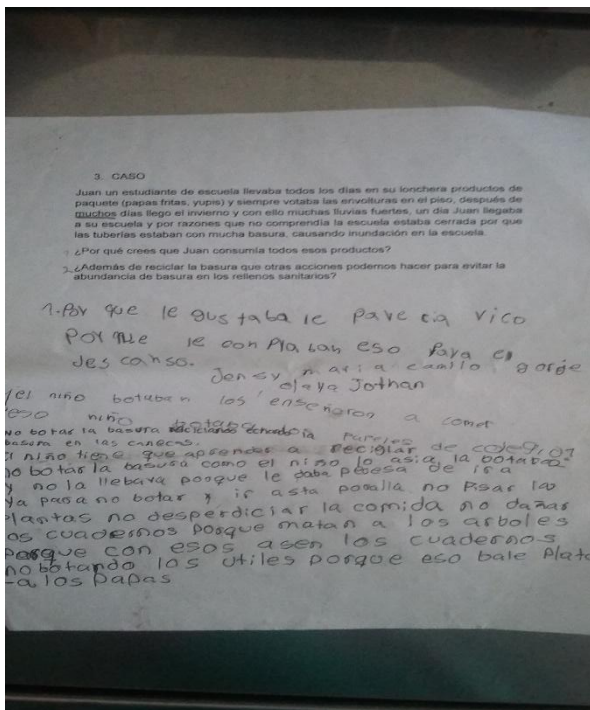 3. CASO
Juan un estudiante de escuela llevaba todos los días en su lonchera productos de
paquete (papas fritas, yupis) y siempre votaba las envolturas en el piso, después de
muchos días llego el invierno y con ello muchas lluvias fuertes, un día Juan llegaba
a su escuela y por razones que no comprendía la escuela estaba cerrada por que
las tuberías estaban con mucha basura, causando inundación en la escuela.
¿Por qué crees que Juan consumía todos esos productos?
2. ¿Además de reciclar la basura que otras acciones podemos hacer para evitar la
abundancia de basura en los rellenos sanitarios?
1. Por que le gustaba le parecia rico
Porque le conpraban eso para el
descanso.
Jensy maria camilo gorge
olaya Jothan
el niño botaban los enseñeron a comer
eso niño
no botar la basura echando la
basura en las canecas.
el niño tiene que aprender a reciclar de
no botar la basura como el niño lo asia la botaba
y no la llebava porque le daba peresa de ir a
ya para no botar y ir asta poralla no Pisar las
plantas no desperdiciar la comida no dañar
los cuadernos porque matan a los arboles
porque con esos asen los cuadernos
no botando los utiles porque eso bale plata
a los papas